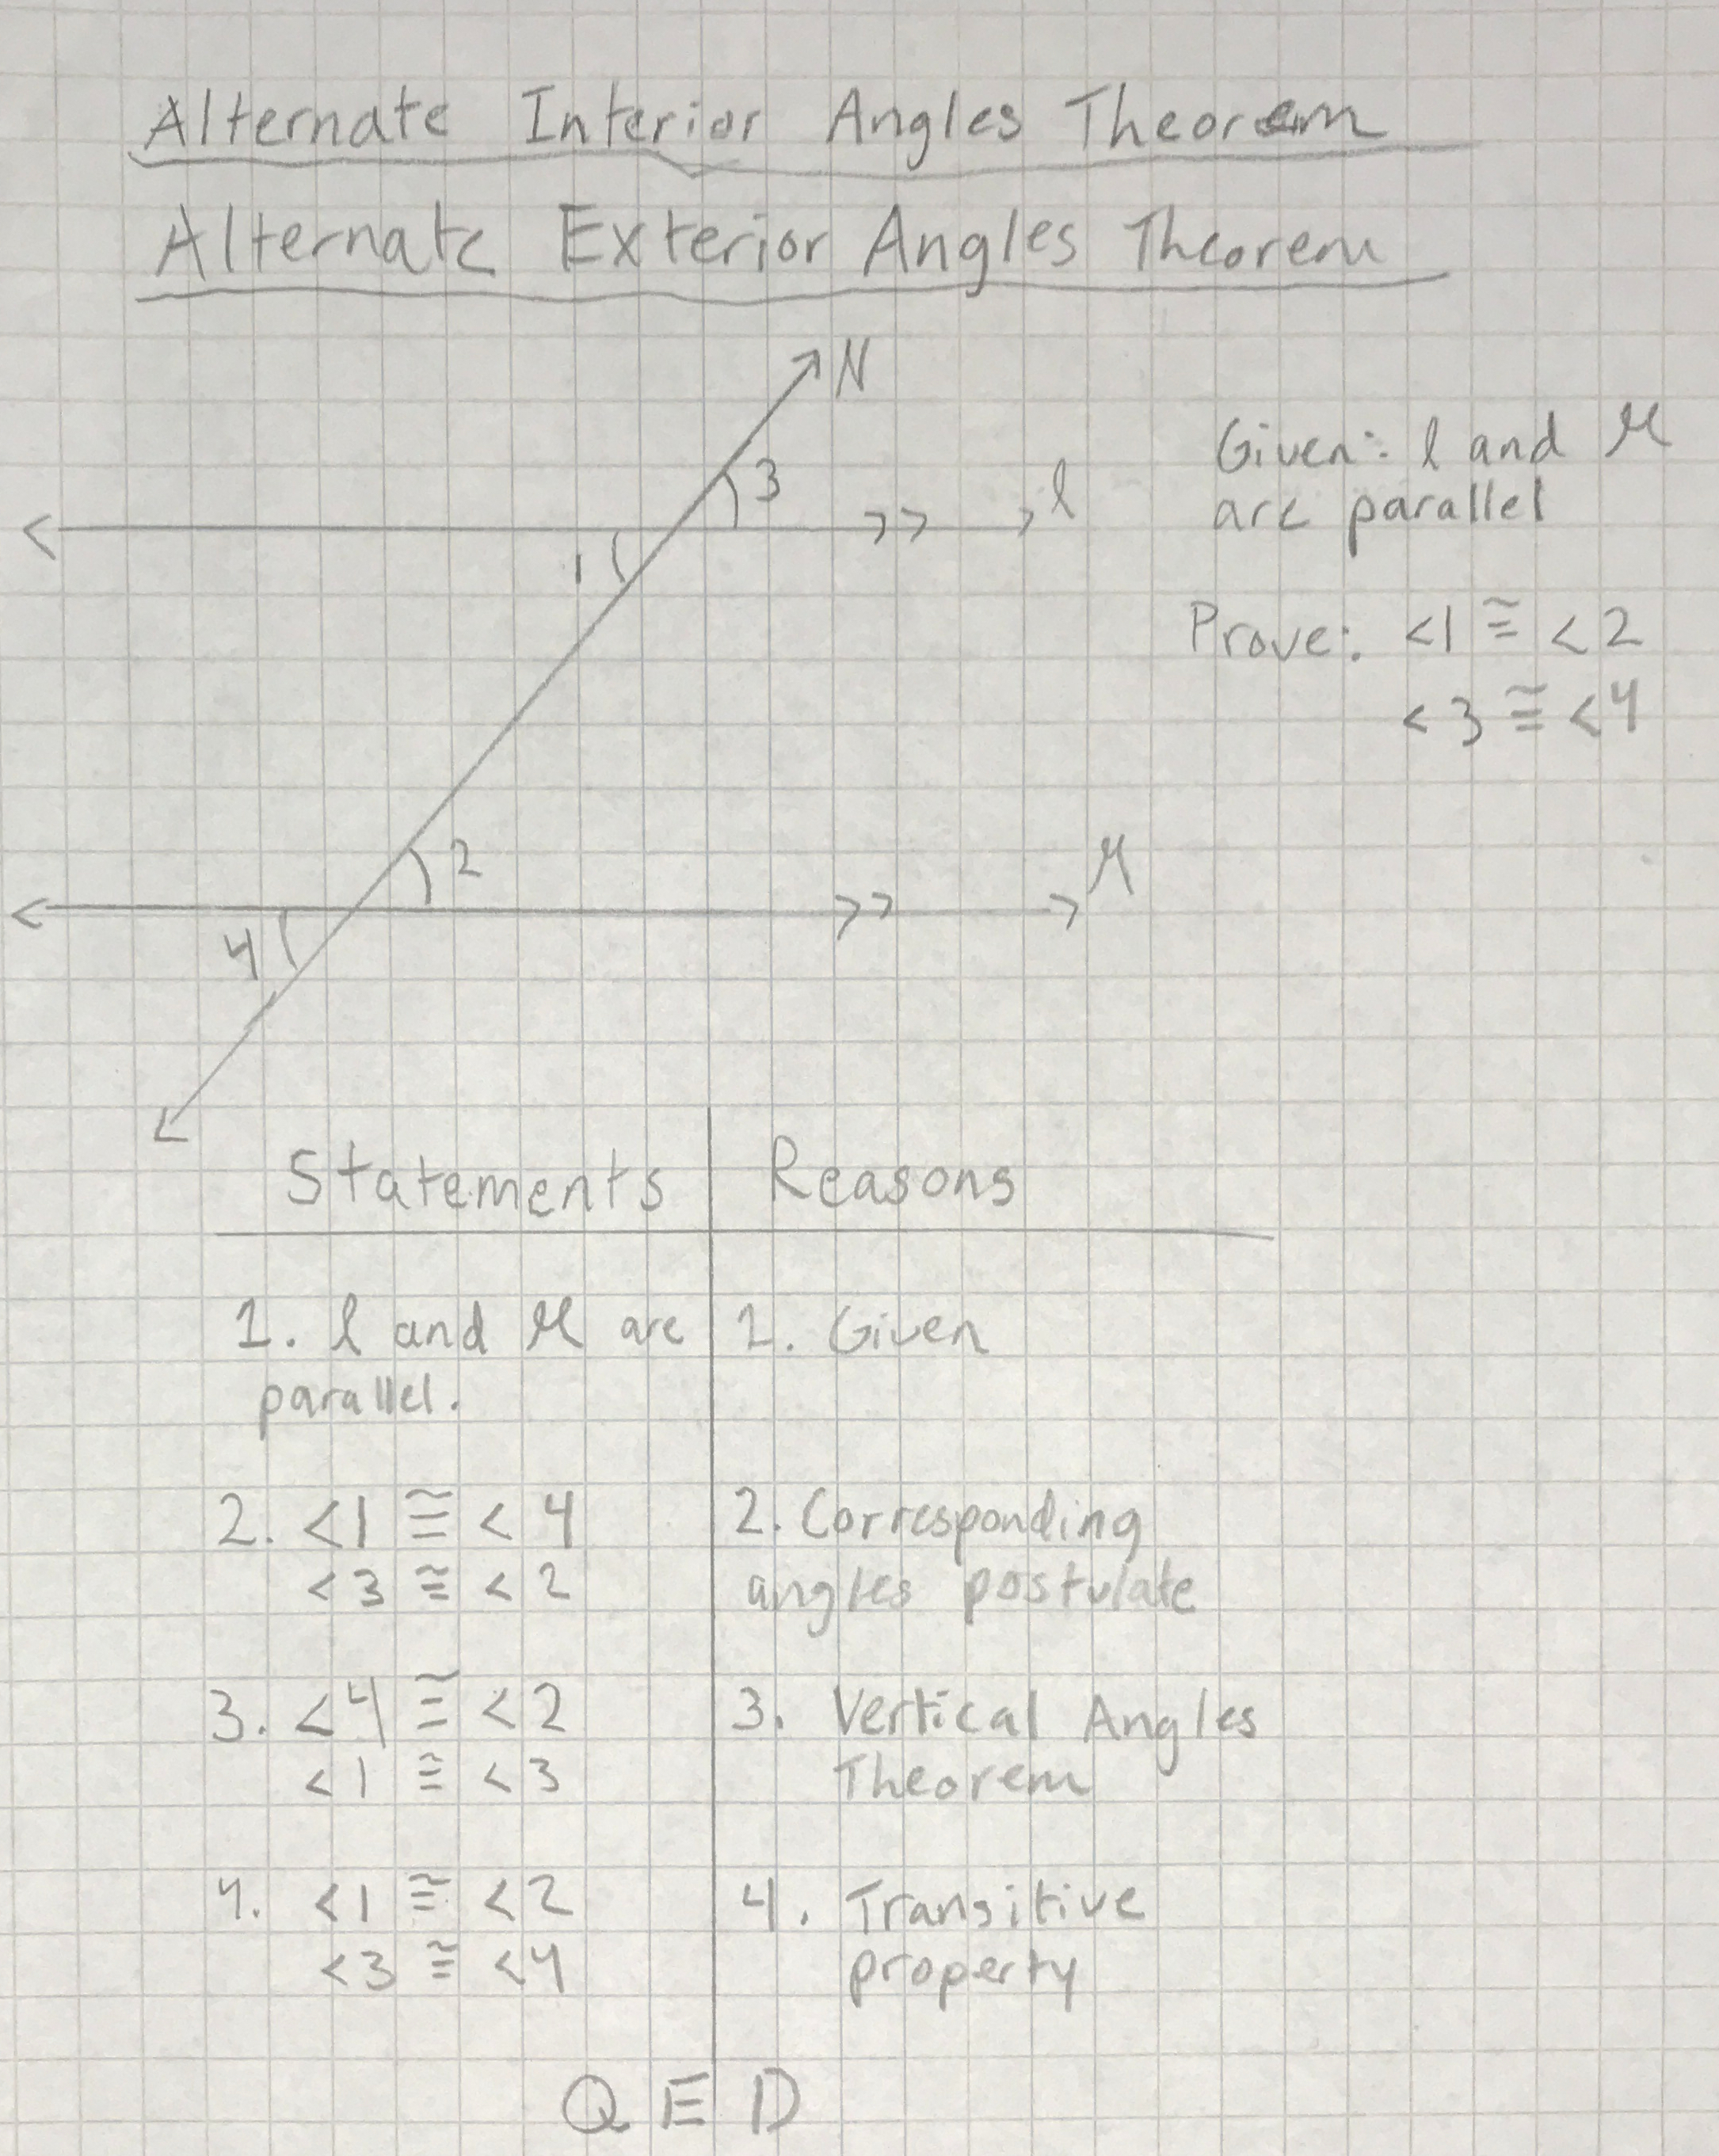 Alternate Interior Angles Theorem
Alternate Exterior Angles Theorem
N
3
l
1
2
M
4
Given: l and M
are parallel
Prove: <1 ≅ <2
<3 ≅ <4
Statements | Reasons
1. l and M are | 1. Given
parallel.
2. <1 ≅ <4 | 2. Corresponding
<3 ≅ <2 | angles postulate
3. <4 ≅ <2 | 3. Vertical Angles
<1 ≅ <3 | Theorem
4. <1 ≅ <2 | 4. Transitive
<3 ≅ <4 | property
QED